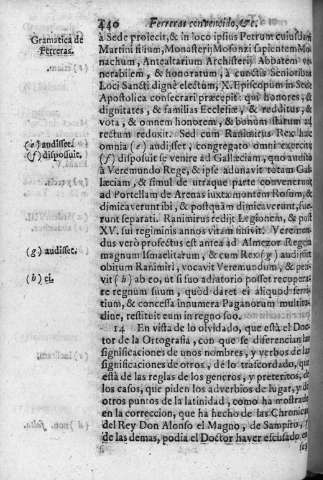 440 Ferreras convencido, &c.
Gramatica de Ferreras.
à Sede projecit, & in loco ipsius Petrum cuiusdam
Martini filium, Monasterij Mosonzi sapientem Mo-
nachum, Antealtarium Archisterij Abbatem ve-
nerabilem, & honoratum, à cunctis Senioribus
Loci Sancti dignè electum, X. Episcopum in Sede
Apostolica consecrari præcepit: qui honores, &
dignitates, & familias Ecclesiæ, & redditus, &
vota, & omnem honorem, & bonum statum ad
rectum reduxit. Sed cum Ranimirus Rex hæc
(e) audisset.
omnia (e) audisset, congregato omni exercitu
(f) disposuit.
(f) disposuit se venire ad Gallæciam, quo audito
à Veremundo Rege, & ipse adunavit totam Gal-
læciam, & simul de utraque parte convenerunt
ad Portellam de Arenas iuxta montem Rosum, &
dimicaverunt ibi, & postquàm dimicaverunt, fue-
runt separati. Ranimirus redijt Legionem, & post
XV. sui regiminis annos vitam finivit. Veremun-
dus verò profectus est antea ad Almezor Regem
(g) audisset.
magnum Ismaelitarum, & cum Rex (g) audisset
obitum Ranimiri, vocavit Veremundum, & peti-
(h) ei.
vit (h) ab eo, ut si suo adiatorio posset recupera-
re regnum suum, quòd daret ei aliquod terri-
tium, & concessa innumera Paganorum multitu-
dine, restituit eum in regno suo.
14 En vista de lo olvidado, que està el Doc-
tor de la Ortografia, con que se diferencian las
significaciones de unos nombres, y verbos de las
significaciones de otros, de lo trascordado, que
està de las reglas de los generos, y preteritos, de
los casos, que piden los adverbios de lugar, y de
otros puntos de la latinidad, como ha mostrado
en la correccion, que ha hecho de las Chronicas
del Rey Don Alonso el Magno, de Sampiro, y
de las demas, podia el Doctor haver escusado en